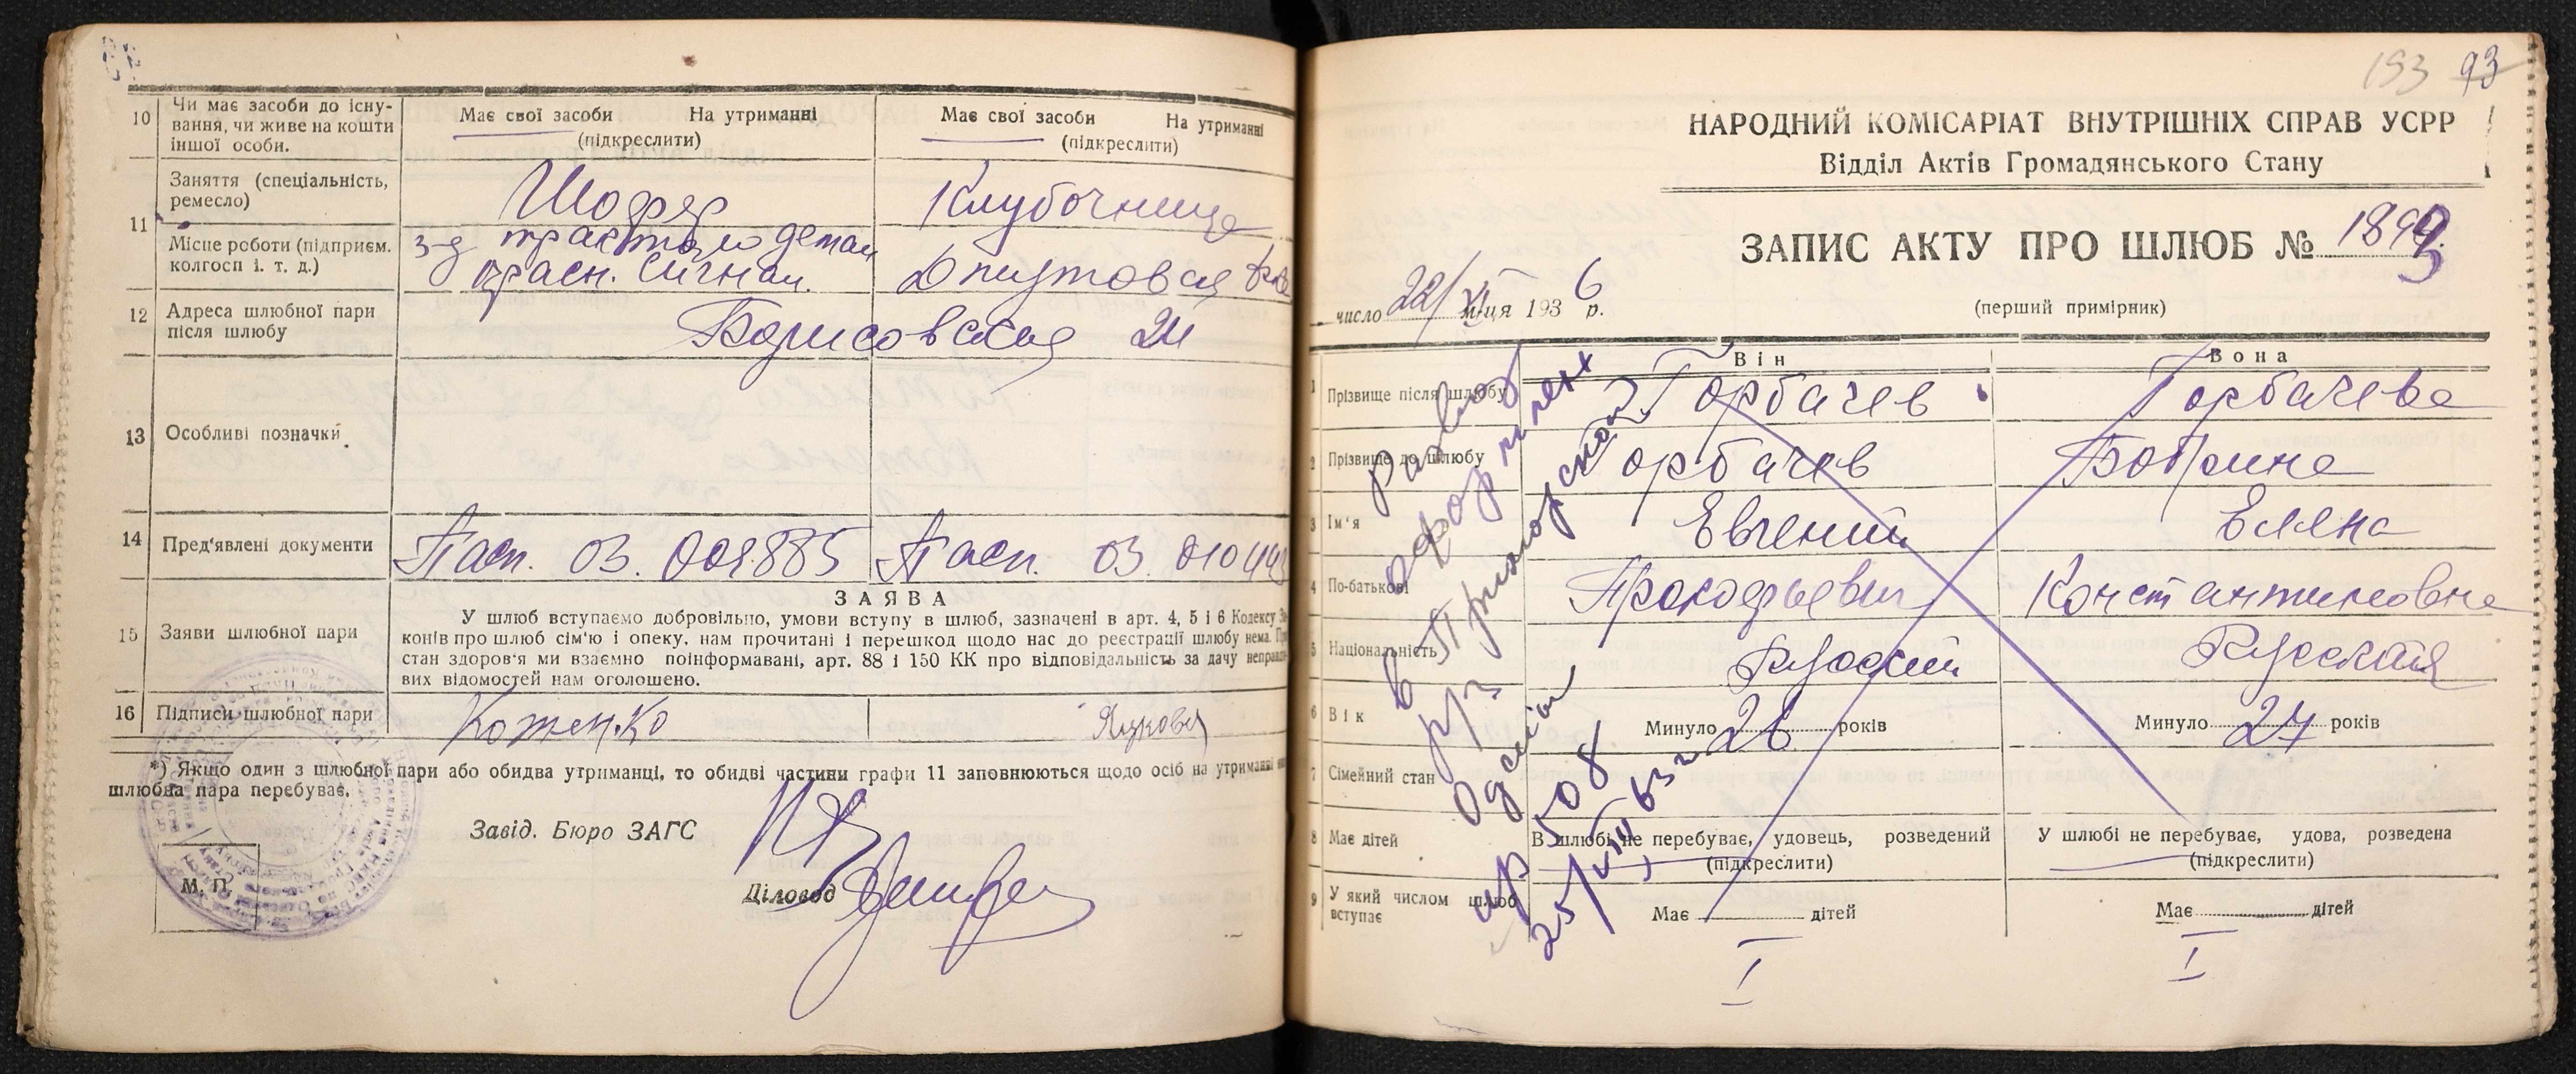 10
Чи має засоби до існу-
вання, чи живе на кошти
іншої особи.
Має свої засоби На утриманні
(підкреслити)
Має свої засоби На утриманні
(підкреслити)
11
Заняття (спеціальність,
ремесло)
Шофер
Місце роботи (підприєм.
колгосп і. т. д.)
Красн. Сигнал.
12
Адреса шлюбної пари
після шлюбу
Борисовская 24
13
Особливі позначки
14
Пред'явлені документи
Пасп. 03. 009.885
Пасп. 03.
15
Заяви шлюбної пари
ЗАЯВА
У шлюб вступаємо добровільно, умови вступу в шлюб, зазначені в арт. 4, 5 і 6 Кодексу
конів про шлюб сім'ю і опеку, нам прочитані і перешкод щодо нас до реєстрації шлюбу нема.
стан здоров'я ми взаємно поінформавані, арт. 88 і 150 КК про відповідальність за дачу неправи
вих відомостей нам оголошено.
16
Підписи шлюбної пари
Коженко
*) Якщо один з шлюбної пари або обидва утриманці, то обидві частини графи 11 заповнюються щодо осіб на утриманні
шлюбна пара перебуває.
Завід. Бюро ЗАГС
Діловод
М. П.
193 93
НАРОДНИЙ КОМІСАРІАТ ВНУТРІШНІХ СПРАВ УСРР
Відділ Актів Громадянського Стану
ЗАПИС АКТУ ПРО ШЛЮБ № 1893
(перший примірник)
число 22/XI м-ця 1936 р.
Він
Вона
1 Прізвище після шлюбу
Горбачев
Горбачева
2 Прізвище до шлюбу
Горбачев
3 Ім'я
Евгений
Елена
4 По-батькові
Прокофьевич
Константиновна
5 Національність
Русский
Русская
6 Вік
Минуло 26 років
Минуло 24 років
7 Сімейний стан
В шлюбі не перебуває, удовець, розведений
(підкреслити)
У шлюбі не перебуває, удова, розведена
(підкреслити)
8 Має дітей
Має дітей
Має дітей
9 У який числом шлюб
вступає
I
I
Развод
оформлен
в Приморском
р/з
ар 508
25/VIII 63 г